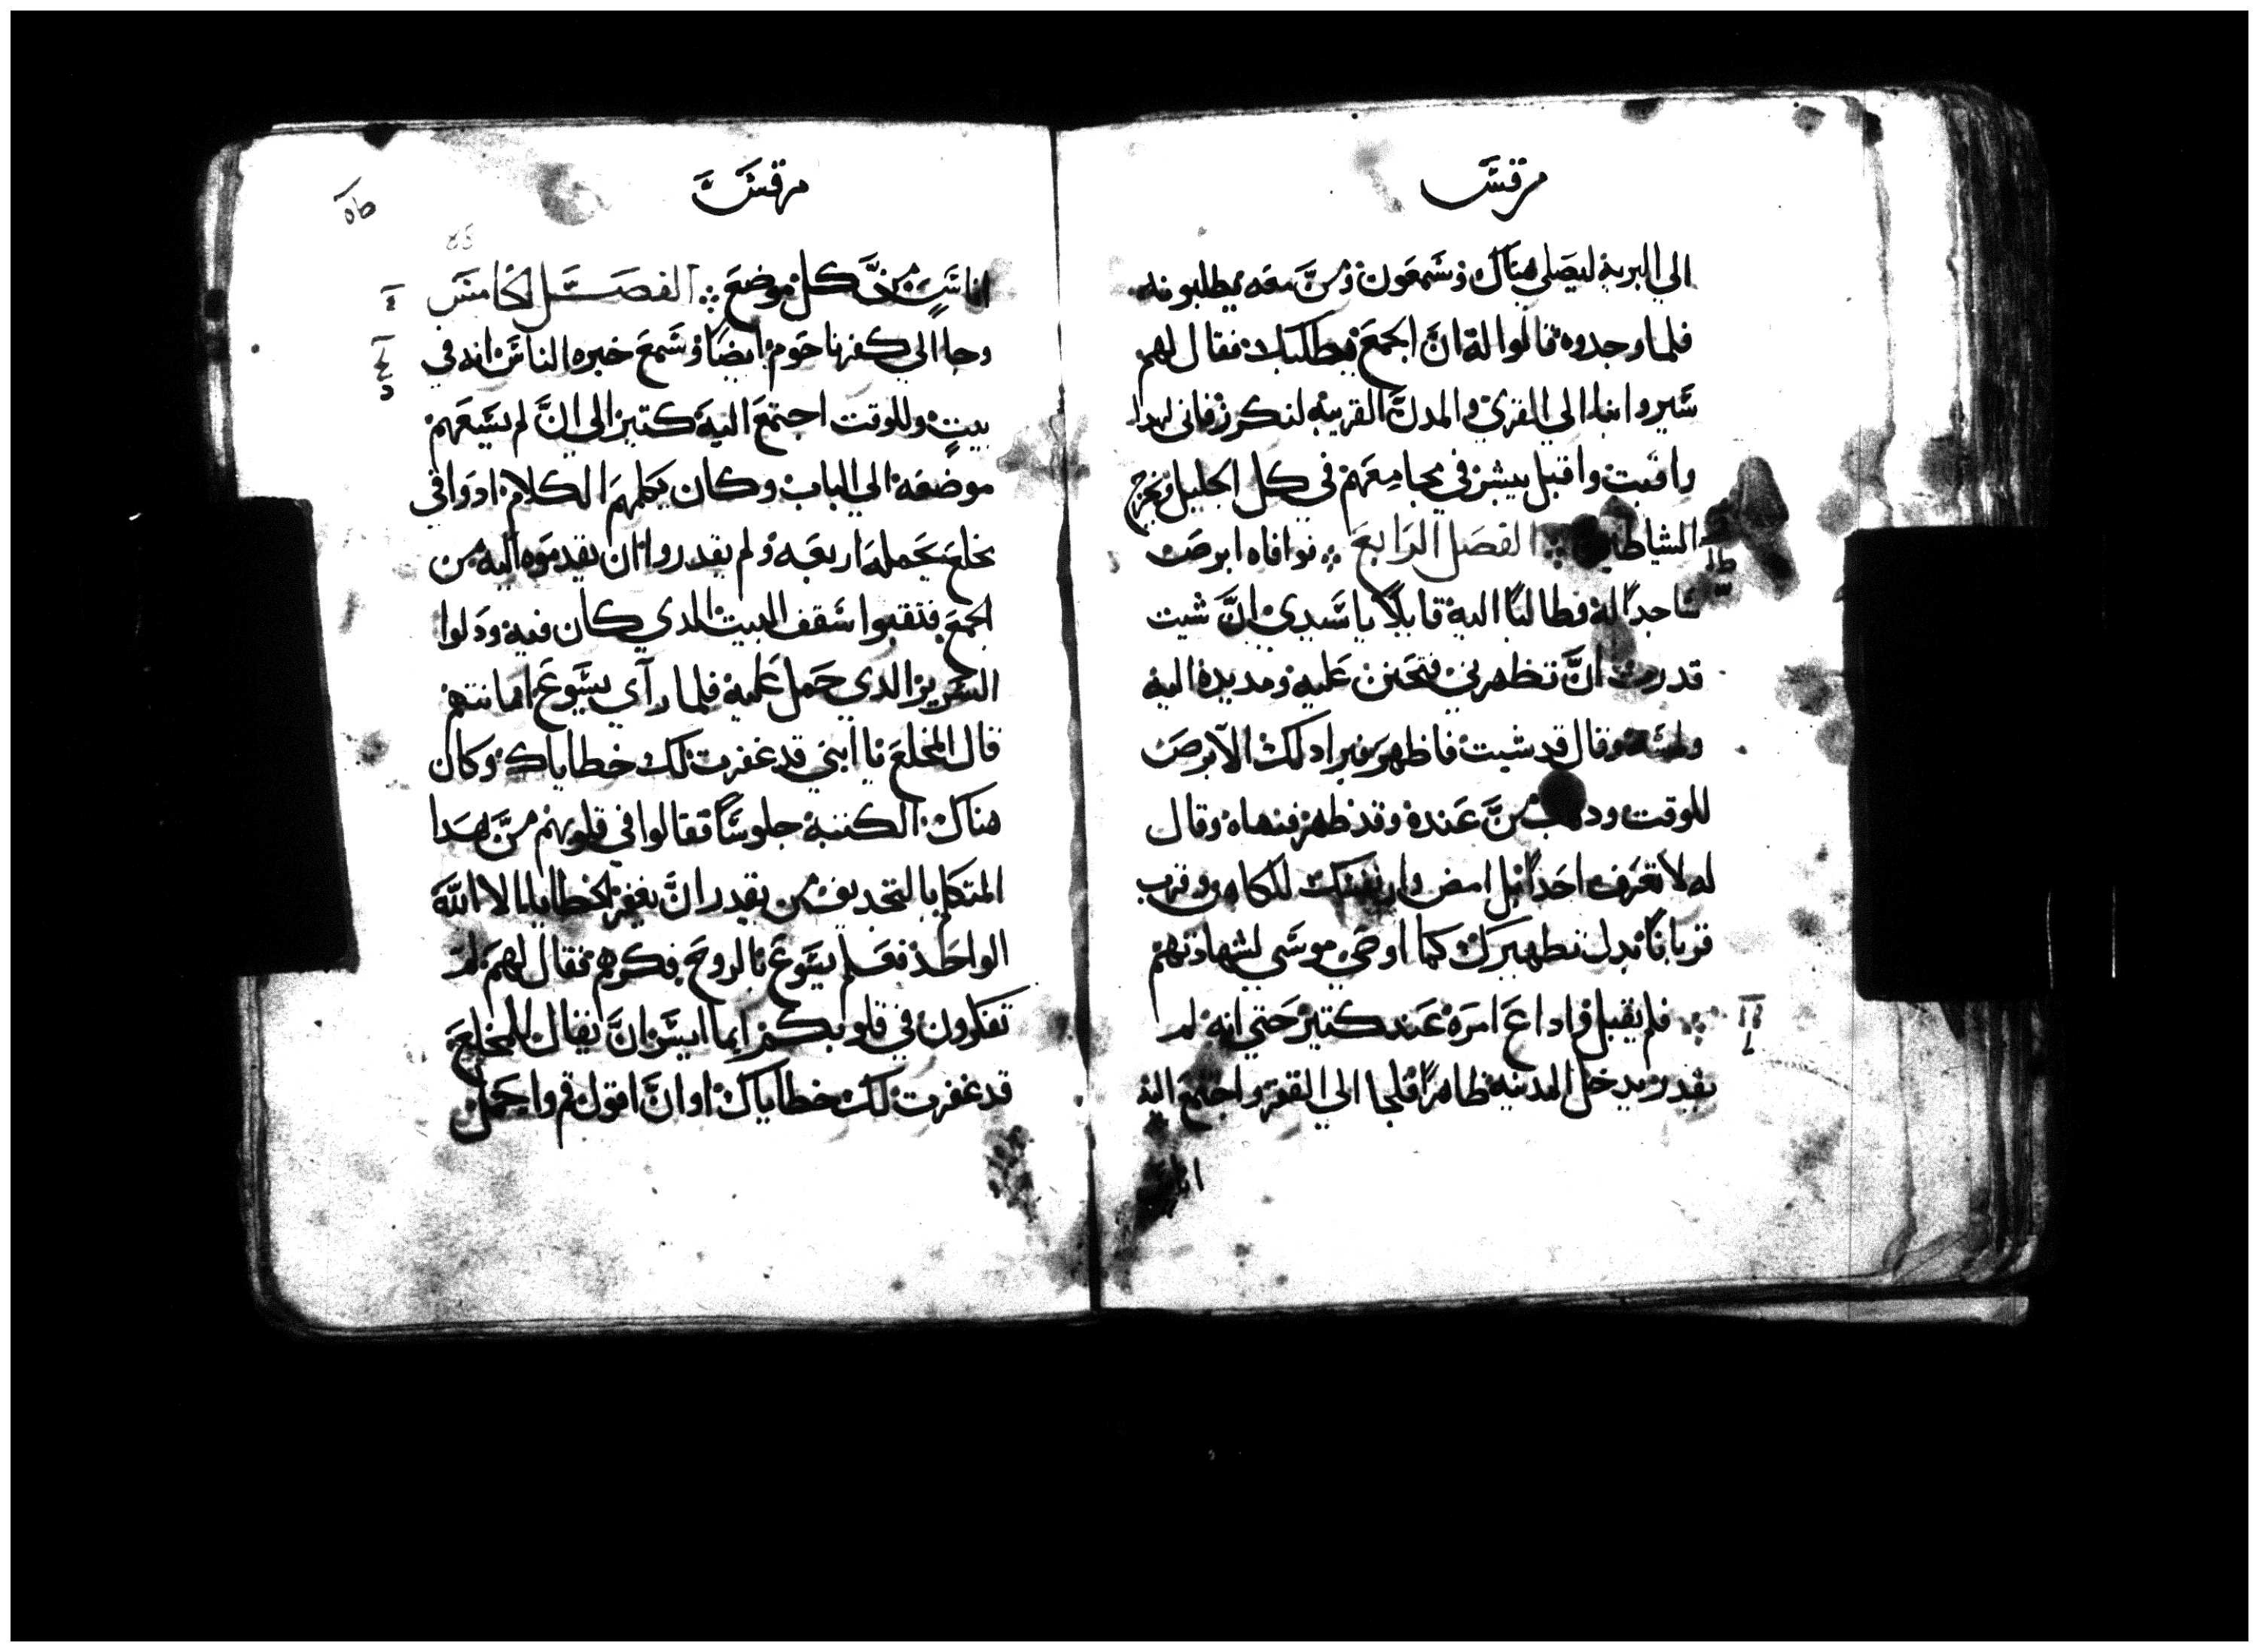 مرقس
الي البرية ليصلي هناك وشمعون ومن معه يطلبونه
فلما وجدوه قالوا له ان الجمع يطلبك فقال لهم
سيروا بنا الي القري والمدن القريبه لنكرز فاني لهدا
وافيت واقبل يبشر في مجامعهم في كل الجليل ويخرج
الشياطين الفصل الرابع فوافاه ابرص
ساجدا له وطالبا اليه قايلا يا سيدي ان شيت
قدرت ان تطهرني فتحنن عليه ومد يده اليه
ولمسه وقال قد شيت فاطهر فبرا دلك الابرص
للوقت ودهب من عنده وقد طهر فنهاه وقال
له لا تعرف احدا بل امض وار نفسك للكاهن وقرب
قربانا بدل تطهيرك كما اوصي موسي لشهادتهم
فلم يقبل واداع امره عند كتير حتي انه لم
يقدر يدخل المدينه ظاهرا فلجا الي القفر واجتمع اليه
اناس
مرقس
اناس من كل موضع الفصل الخامس
وجا الي كفرناحوم ايضا وسمع خبره الناس انه في
بيت وللوقت اجتمع اليه كتير الي ان لم يسعهم
موضعه الي الباب وكان يكلمهم الكلام ادوافي
بخلع يحمله اربعه ولم يقدروا ان يقدموه اليه من
الجمع فنقبوا سقف البيت الدي كان فيه ودلوا
السرير الدي حمل عليه فلما راي يسوع امانتهم
قال للمخلع يا ابني قد غفرت لك خطاياك وكان
هناك الكتبه جلوسا فقالوا في قلوبهم من هدا
المتكلم بالتجديف من يقدر ان يغفر الخطايا الا الله
الواحد فعلم يسوع بالروح فكرهم فقال لهم لم
تفكرون في قلوبكم ايما ايسر ان يقال للمخلع
قد غفرت لك خطاياك او ان اقول قم واحمل